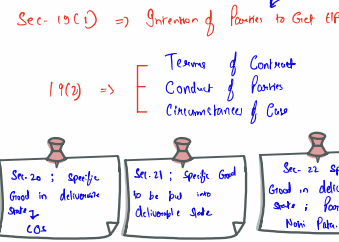 Sec-19(1) => Intention of Parties to Get
Terms of Contract
19(2) => Conduct of Parties
Circumstances of Case
Sec.20 ; Specific
Good in deliverable
State
COS
Sec.21 ; Specific Good
to be put into
deliverable State
Sec-22 Sp
Good in deli
State ;
Nahi Pata.